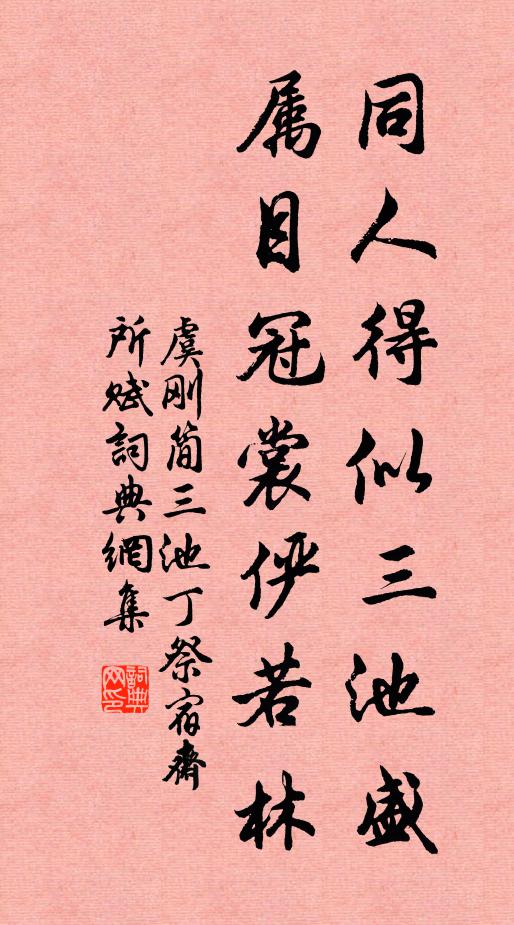 同人得似三池盛
属目冠裳俨若林
虞刚简三池丁祭宿斋
所赋詞典網集
詞典网印